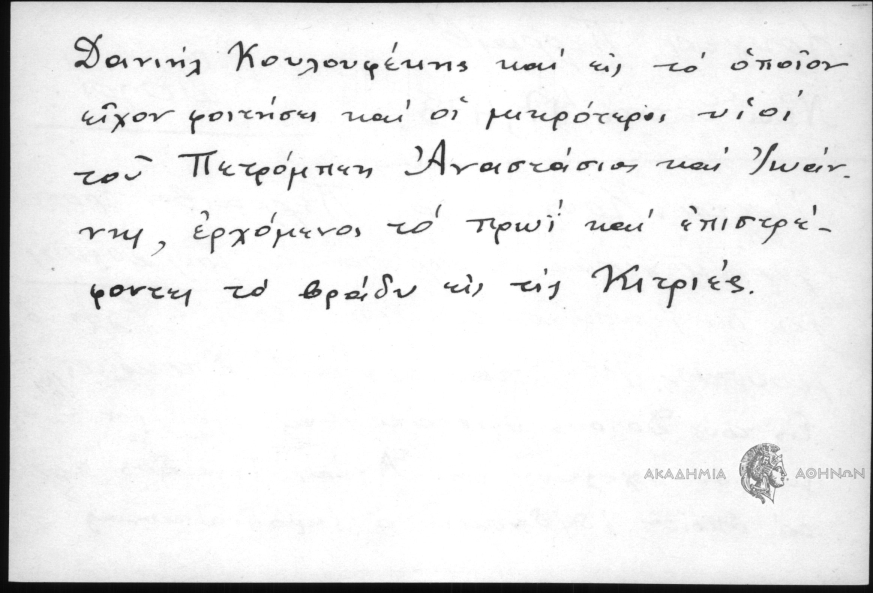 Δανιήλ Κουλουφέκης καί εἰς τό ὁποῖον
εἶχον φοιτήσει καί οἱ μικρότεροι υἱοί
τοῦ Πετρόμπεη Ἀναστάσιος καί Ἰωάν-
νης, ἐρχόμενοι τό πρωΐ καί ἐπιστρέ-
φοντες τό βράδυ εἰς τίς Κιτριές.
ΑΚΑΔΗΜΙΑ ΑΘΗΝΩΝ